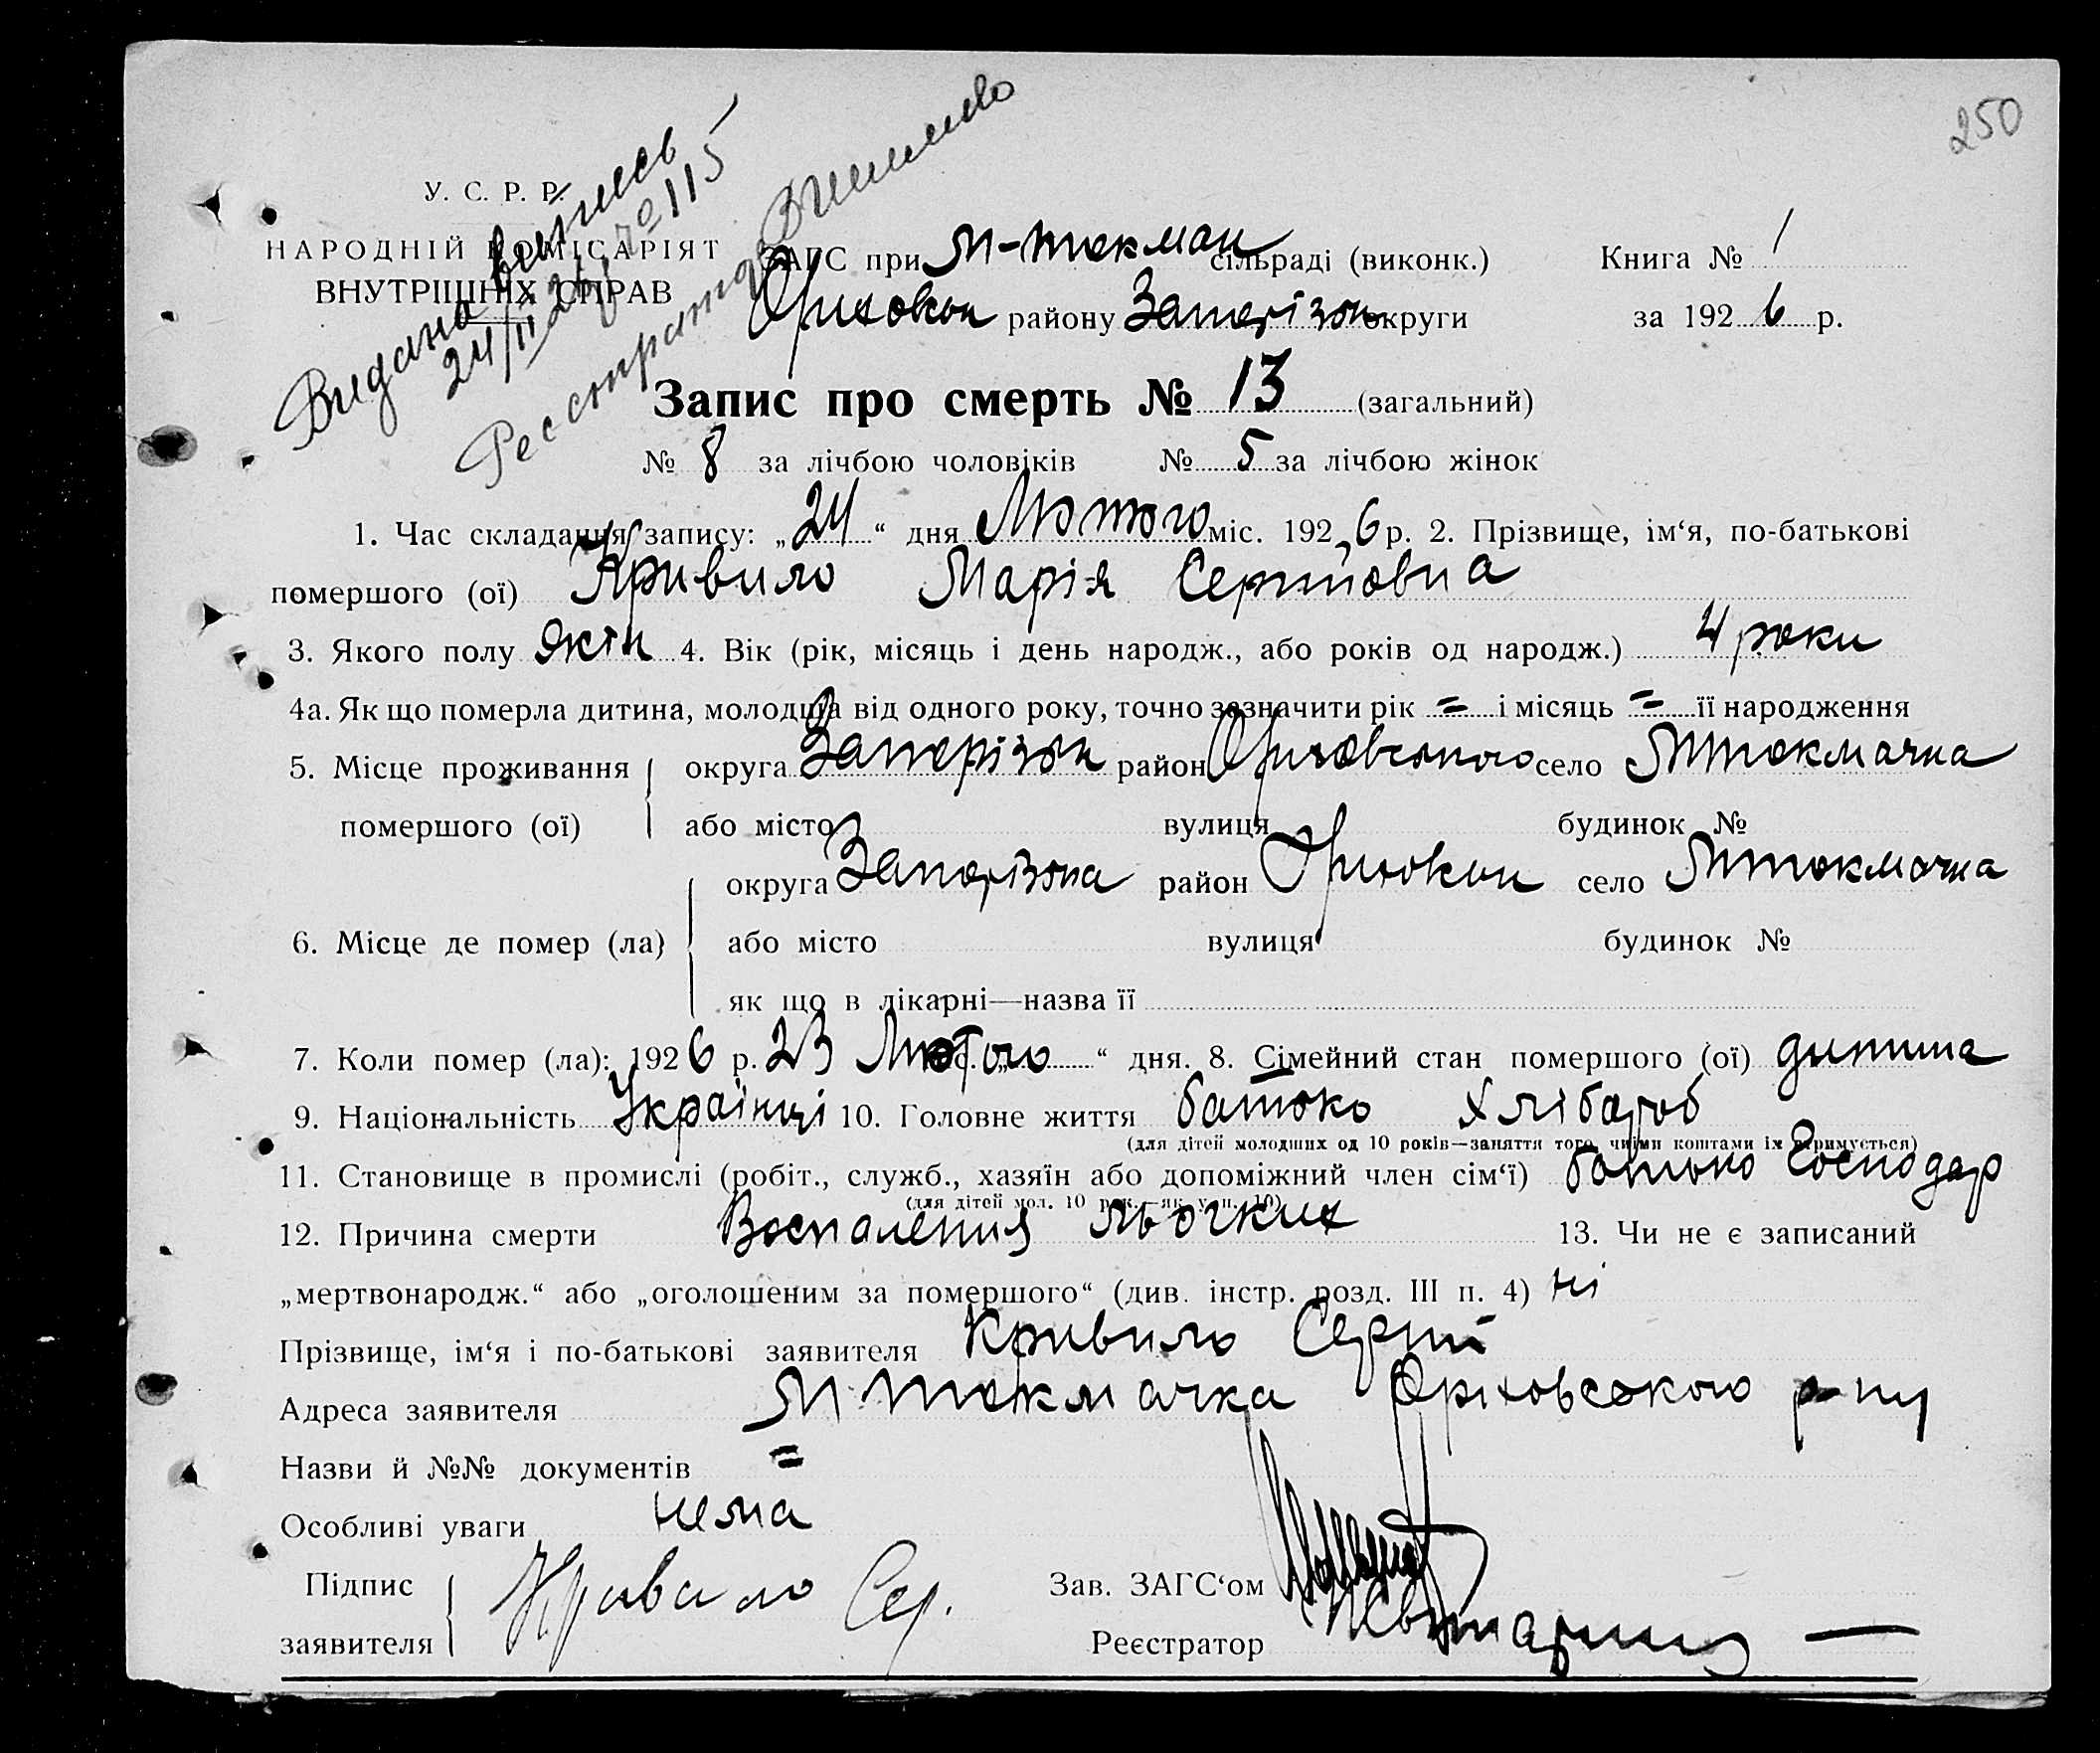 250
Видана випись
24/II 26 р. № 115
У. С. Р. Р.
НАРОДНІЙ КОМІСАРІЯТ
ВНУТРІШНІХ СПРАВ
ЗАГС при М-Токман сільраді (виконк.) Книга № 1
району Запоріжж округи за 1926 р.
Запис про смерть № 13 (загальний)
№ 8 за лічбою чоловіків № 5 за лічбою жінок
1. Час складання запису: „24“ дня Лютого міс. 1926 р. 2. Прізвище, ім‘я, по-батькові
помершого (ої) Кривило Марія Сергіовна
3. Якого полу 4. Вік (рік, місяць і день народж., або років од народж.) 4 роки
4а. Як що померла дитина, молодша від одного року, точно зазначити рік = і місяць = її народження
5. Місце проживання округа район село Мтокмачка
помершого (ої) або місто вулиця будинок №
округа район село Мтокмачка
6. Місце де помер (ла) або місто вулиця будинок №
як що в лікарні—назва її
7. Коли помер (ла): 1926 р. 23 Лютого “ дня. 8. Сімейний стан помершого (ої) дитина
9. Національність Українці 10. Головне життя батько Хлібороб
(для дітей молодших од 10 років—заняття того, чиїми коштами їх утримується)
11. Становище в промислі (робіт., служб., хазяїн або допоміжний член сім‘ї) батько Господар
(для дітей мол. 10 рок.—як у п. 10)
12. Причина смерти Воспаления льогких 13. Чи не є записаний
„мертвонародж.“ або „оголошеним за помершого“ (див. інстр. розд. III п. 4) ні
Прізвище, ім‘я і по-батькові заявителя Кривило Сергій
Адреса заявителя М Токмачка Оріховського р-ну
Назви й №№ документів =
Особливі уваги нема
Підпис Кривило Сер. Зав. ЗАГС‘ом
заявителя Реєстратор